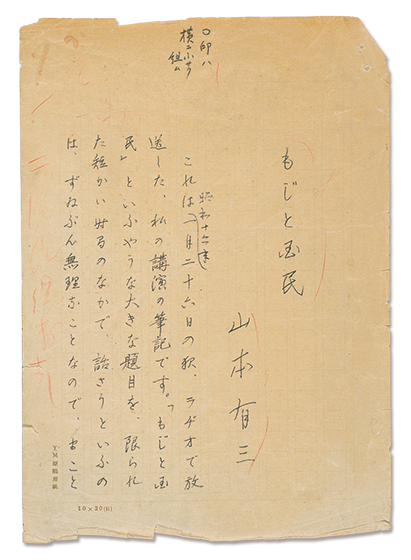 〇印ハ
横ニ小サク
組ム
もじと国民
山本有三
これは昭和十六年一月二十六日の夜、ラヂオで放
送した、私の講演の筆記です。「もじと国
民」といふやうな大きな題目を、限られ
た短かい時間のなかで、話さうといふの
は、ずゐぶん無理なことなので、まこと
10×20